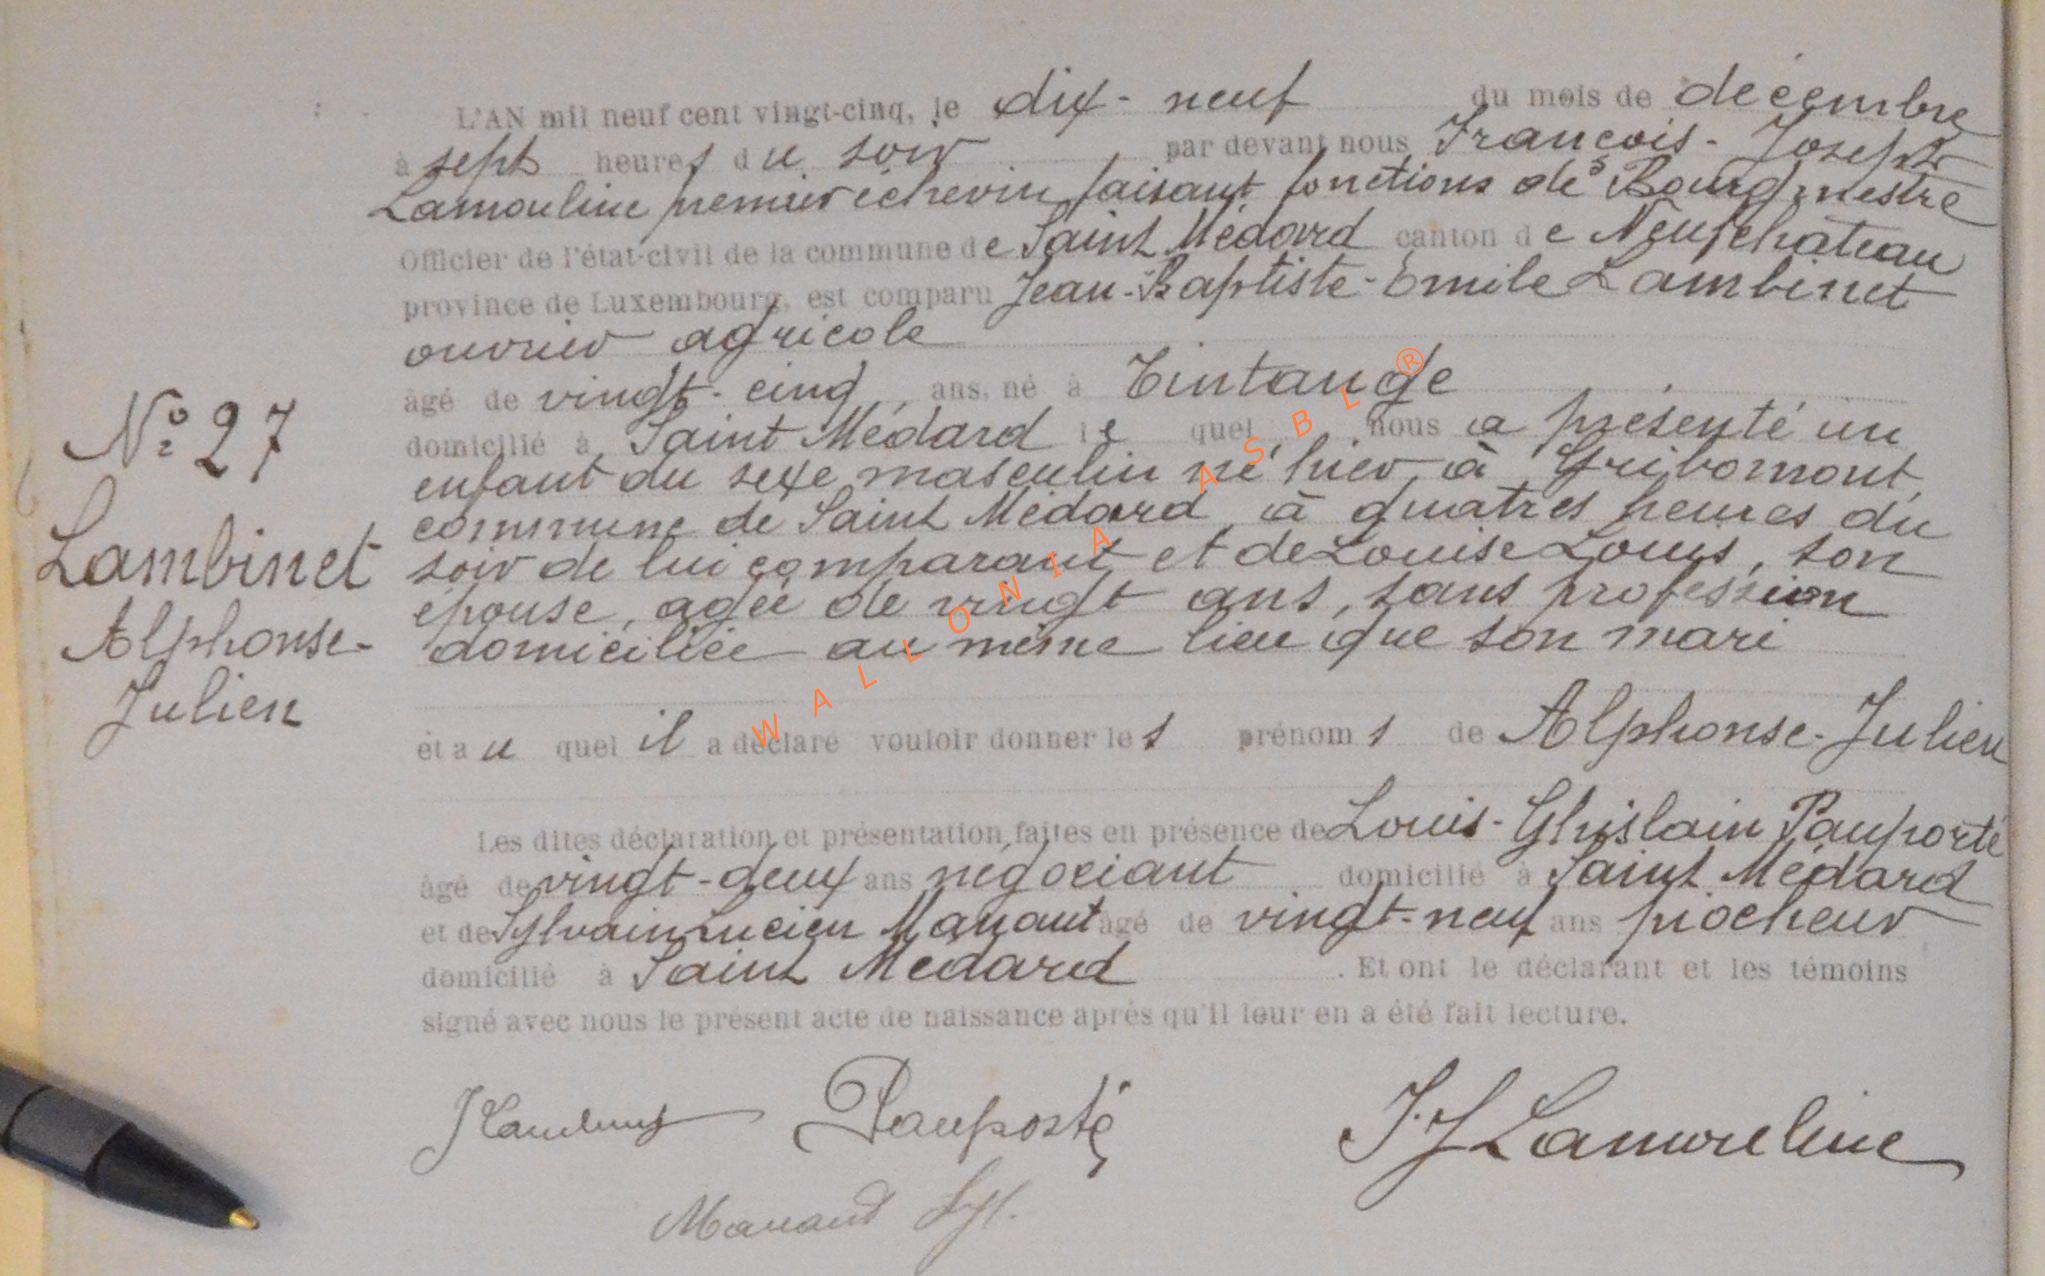 L'AN mil neuf cent vingt-cinq, le dix-neuf du mois de décembre
à sept heures du soir par devant nous François-Joseph
Lamouline premier échevin faisant fonctions de Bourgmestre
Officier de l'état-civil de la commune de Saint Médard canton de Neufchâteau
province de Luxembourg, est comparu Jean-Baptiste-Emile Lambinet
ouvrier agricole
âgé de vingt-cinq, ans, né à Tintange
domicilié à Saint Médard lequel nous a présenté un
enfant du sexe masculin né hier à Gribomont,
commune de Saint Médard, à quatres heures du
soir de lui comparant et de Louise Louis, son
épouse, agée de vingt ans, sans profession
domiciliée au même lieu que son mari
et au quel il a déclaré vouloir donner les prénoms de Alphonse-Julien
Les dites déclaration et présentation faites en présence de Louis-Ghislain Pauporté
âgé de vingt-deux ans négociant domicilié à Saint Médard
et de Sylvain Lucien Manant âgé de vingt-neuf ans piocheur
domicilié à Saint Médard. Et ont le déclarant et les témoins
signé avec nous le présent acte de naissance après qu'il leur en a été fait lecture.
N° 27
Lambinet
Alphonse-
Julien
Pauporté
J. J Lamouline
Manant Syl.
WALLONIA ASBL ®